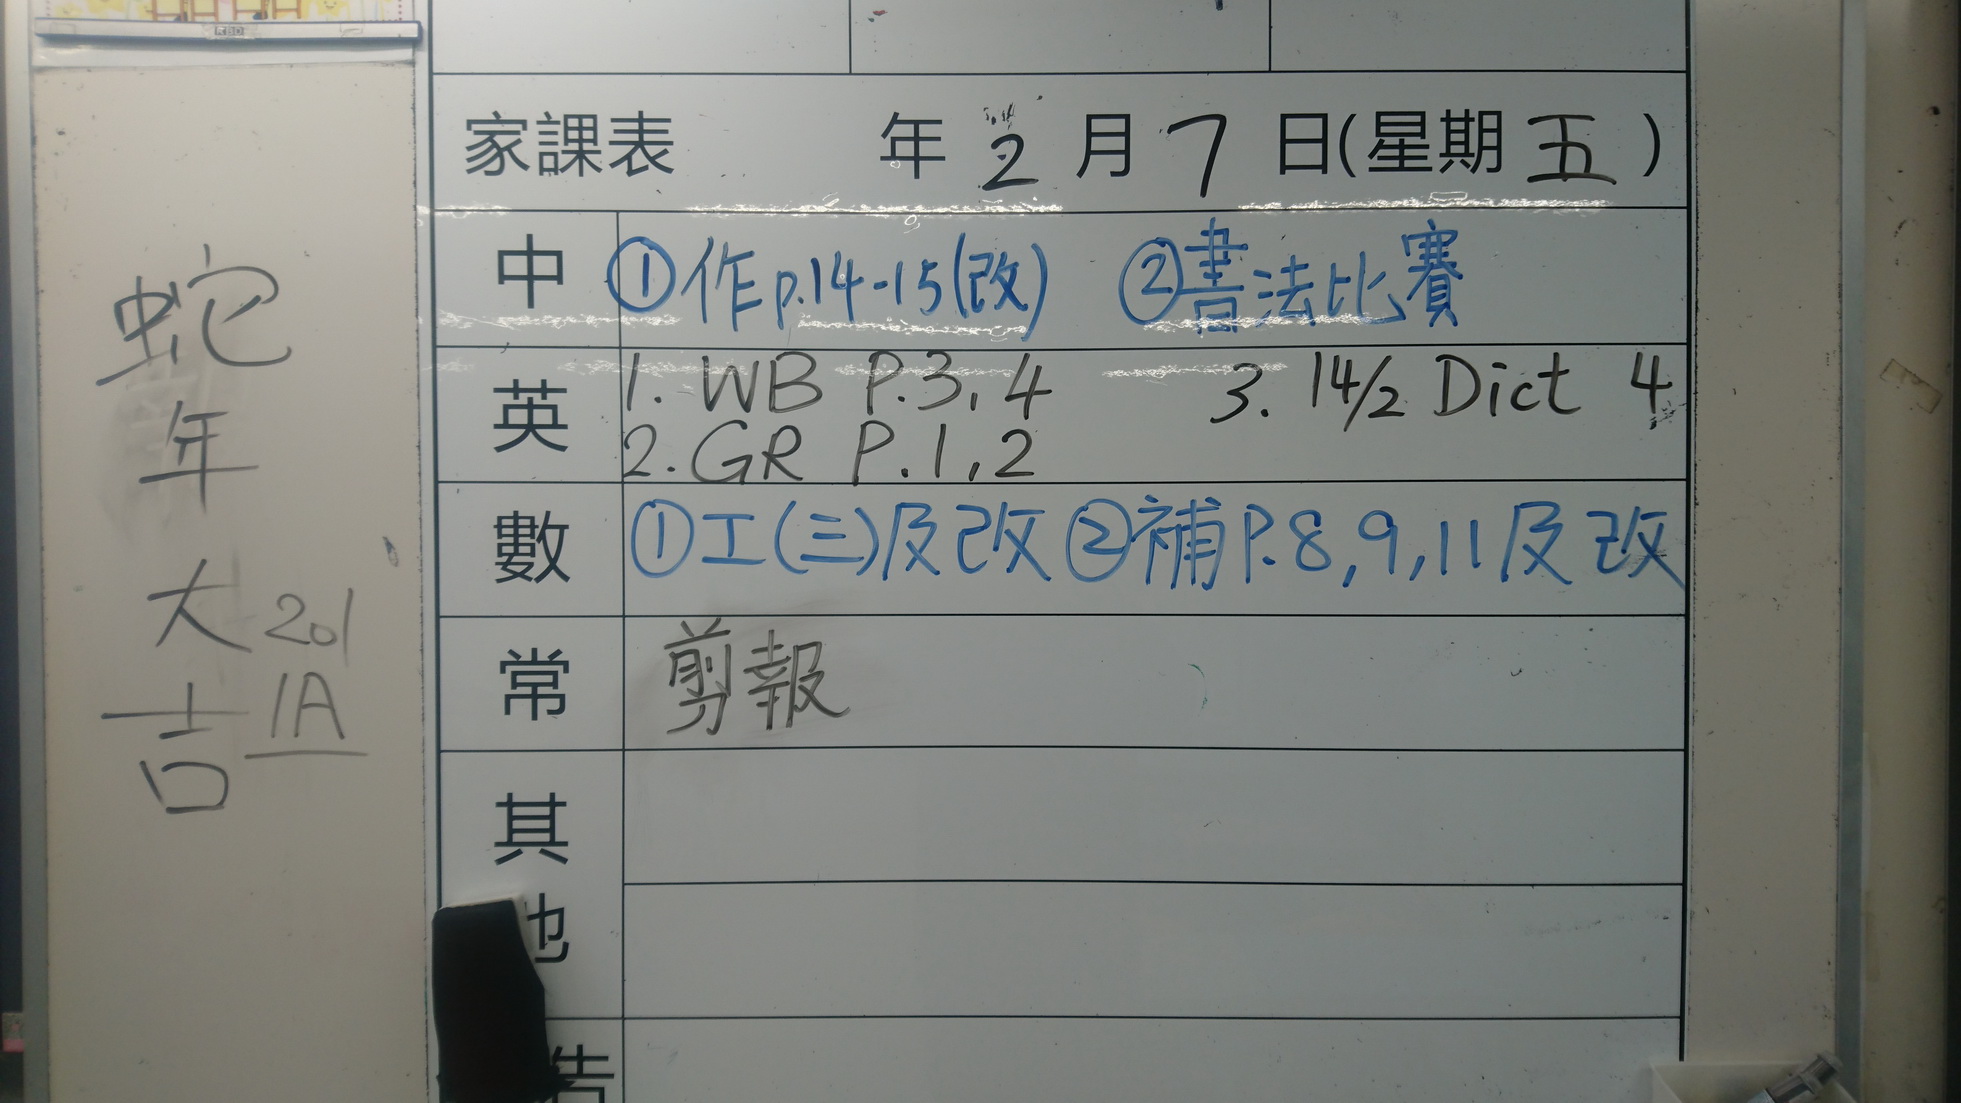 RBD
家課表 年 2 月 7 日(星期 五 )
中 ①作p.14-15(改) ②書法比賽
英 1. WB P.3,4 3. 14/2 Dict 4
2. GR P.1,2
數 ①工(三)及改 ②補P.8,9,11及改
常 剪報
其
他
蛇
年
大
吉
201
1A